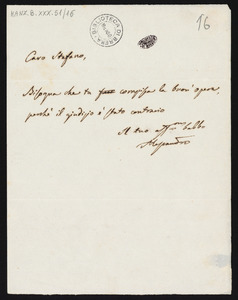 MANZ.B.XXX.51/16
16
BIBLIOTECA DI BRERA
Caro Stefano,
Bisogna che tu compisca la buon'opera,
perchè il giudizio è stato contrario
Il tuo aff.mo babbo
Alessandro